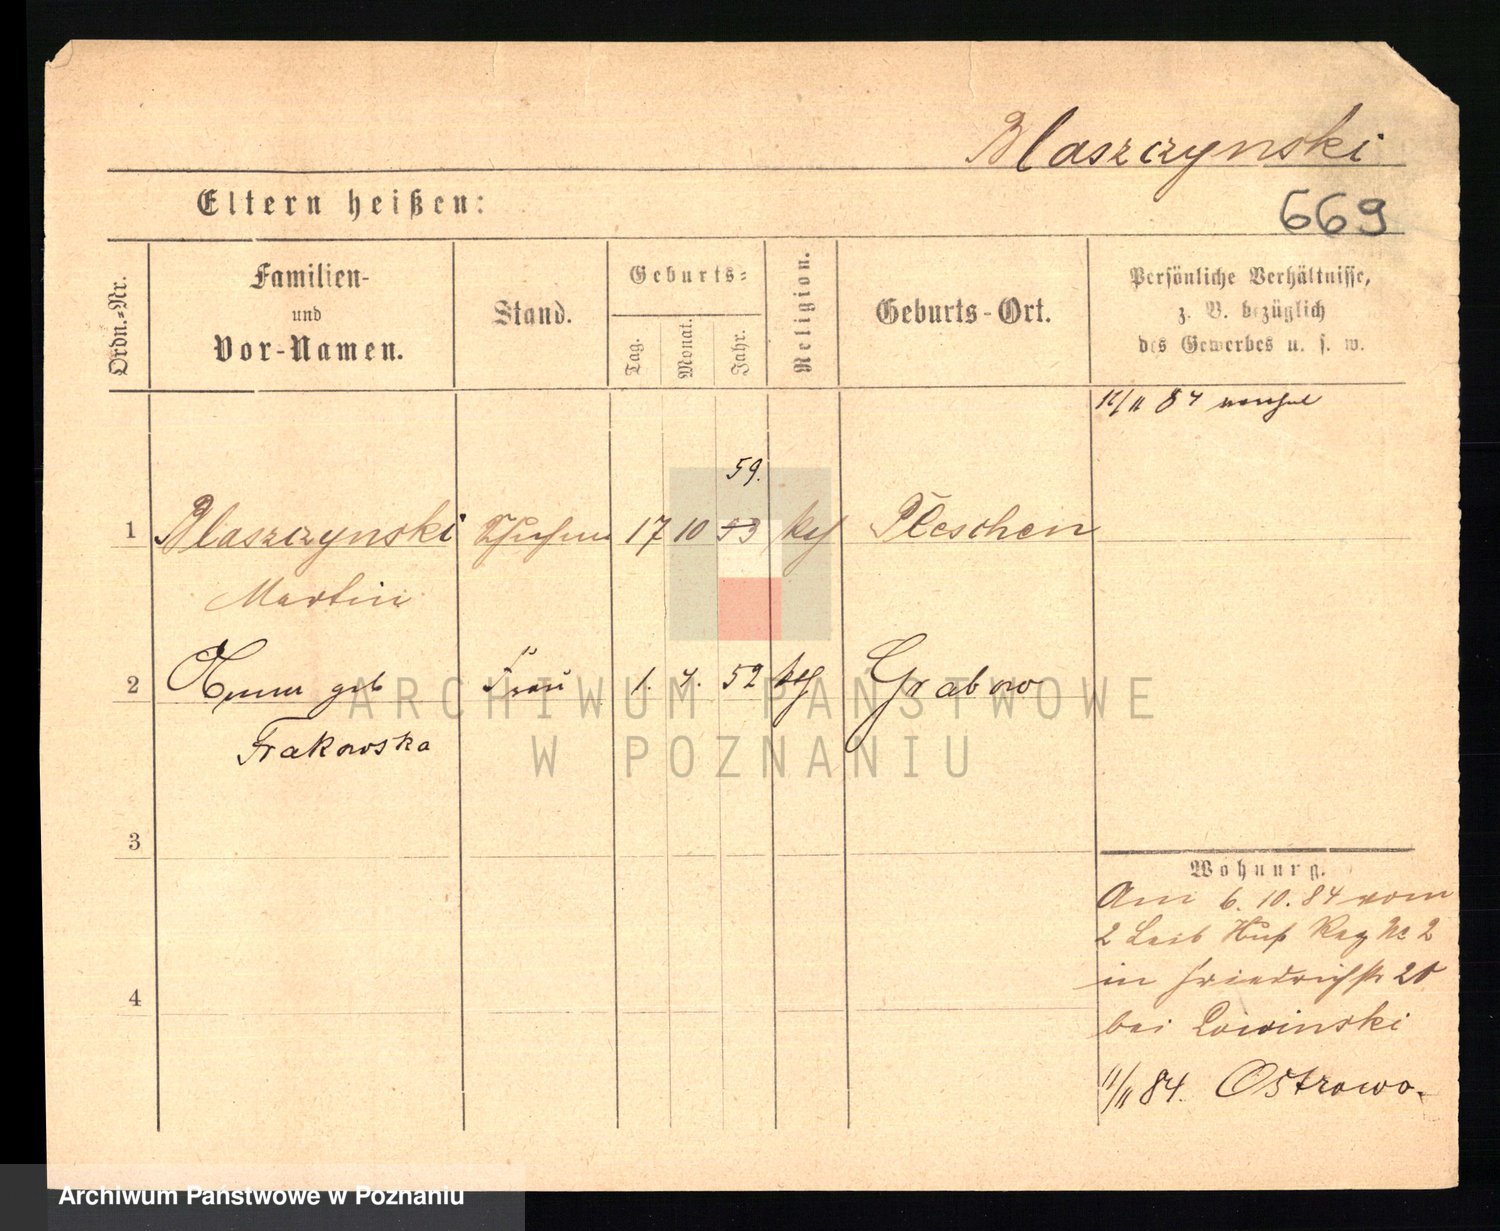 Blaszczynski
Eltern heißen:
669
Ordn.-Nr.
Familien-
und
Vor-Namen.
Stand.
Geburts-
Tag.
Monat.
Jahr.
Religion.
Geburts-Ort.
Persönliche Verhältnisse,
z. B. bezüglich
des Gewerbes u. s. w.
84
59.
1 Blaszczynski 17 10 53 kth Pleschen
Martin
2 geb Frau 1. 4. 52 kth Grabow
Frakowska
ARCHIWUM PAŃSTWOWE
W POZNANIU
3
Wohnung.
Am 6. 10. 84 vom
2 Leib Hus Reg No 2
4
in Friedrichstr 20
bei Lowinski
11/11 84. Ostrowo.
Archiwum Państwowe w Poznaniu